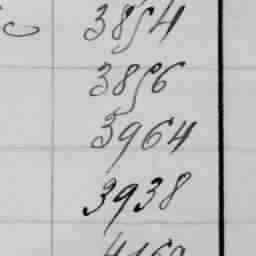 3854
3856
3964
3938